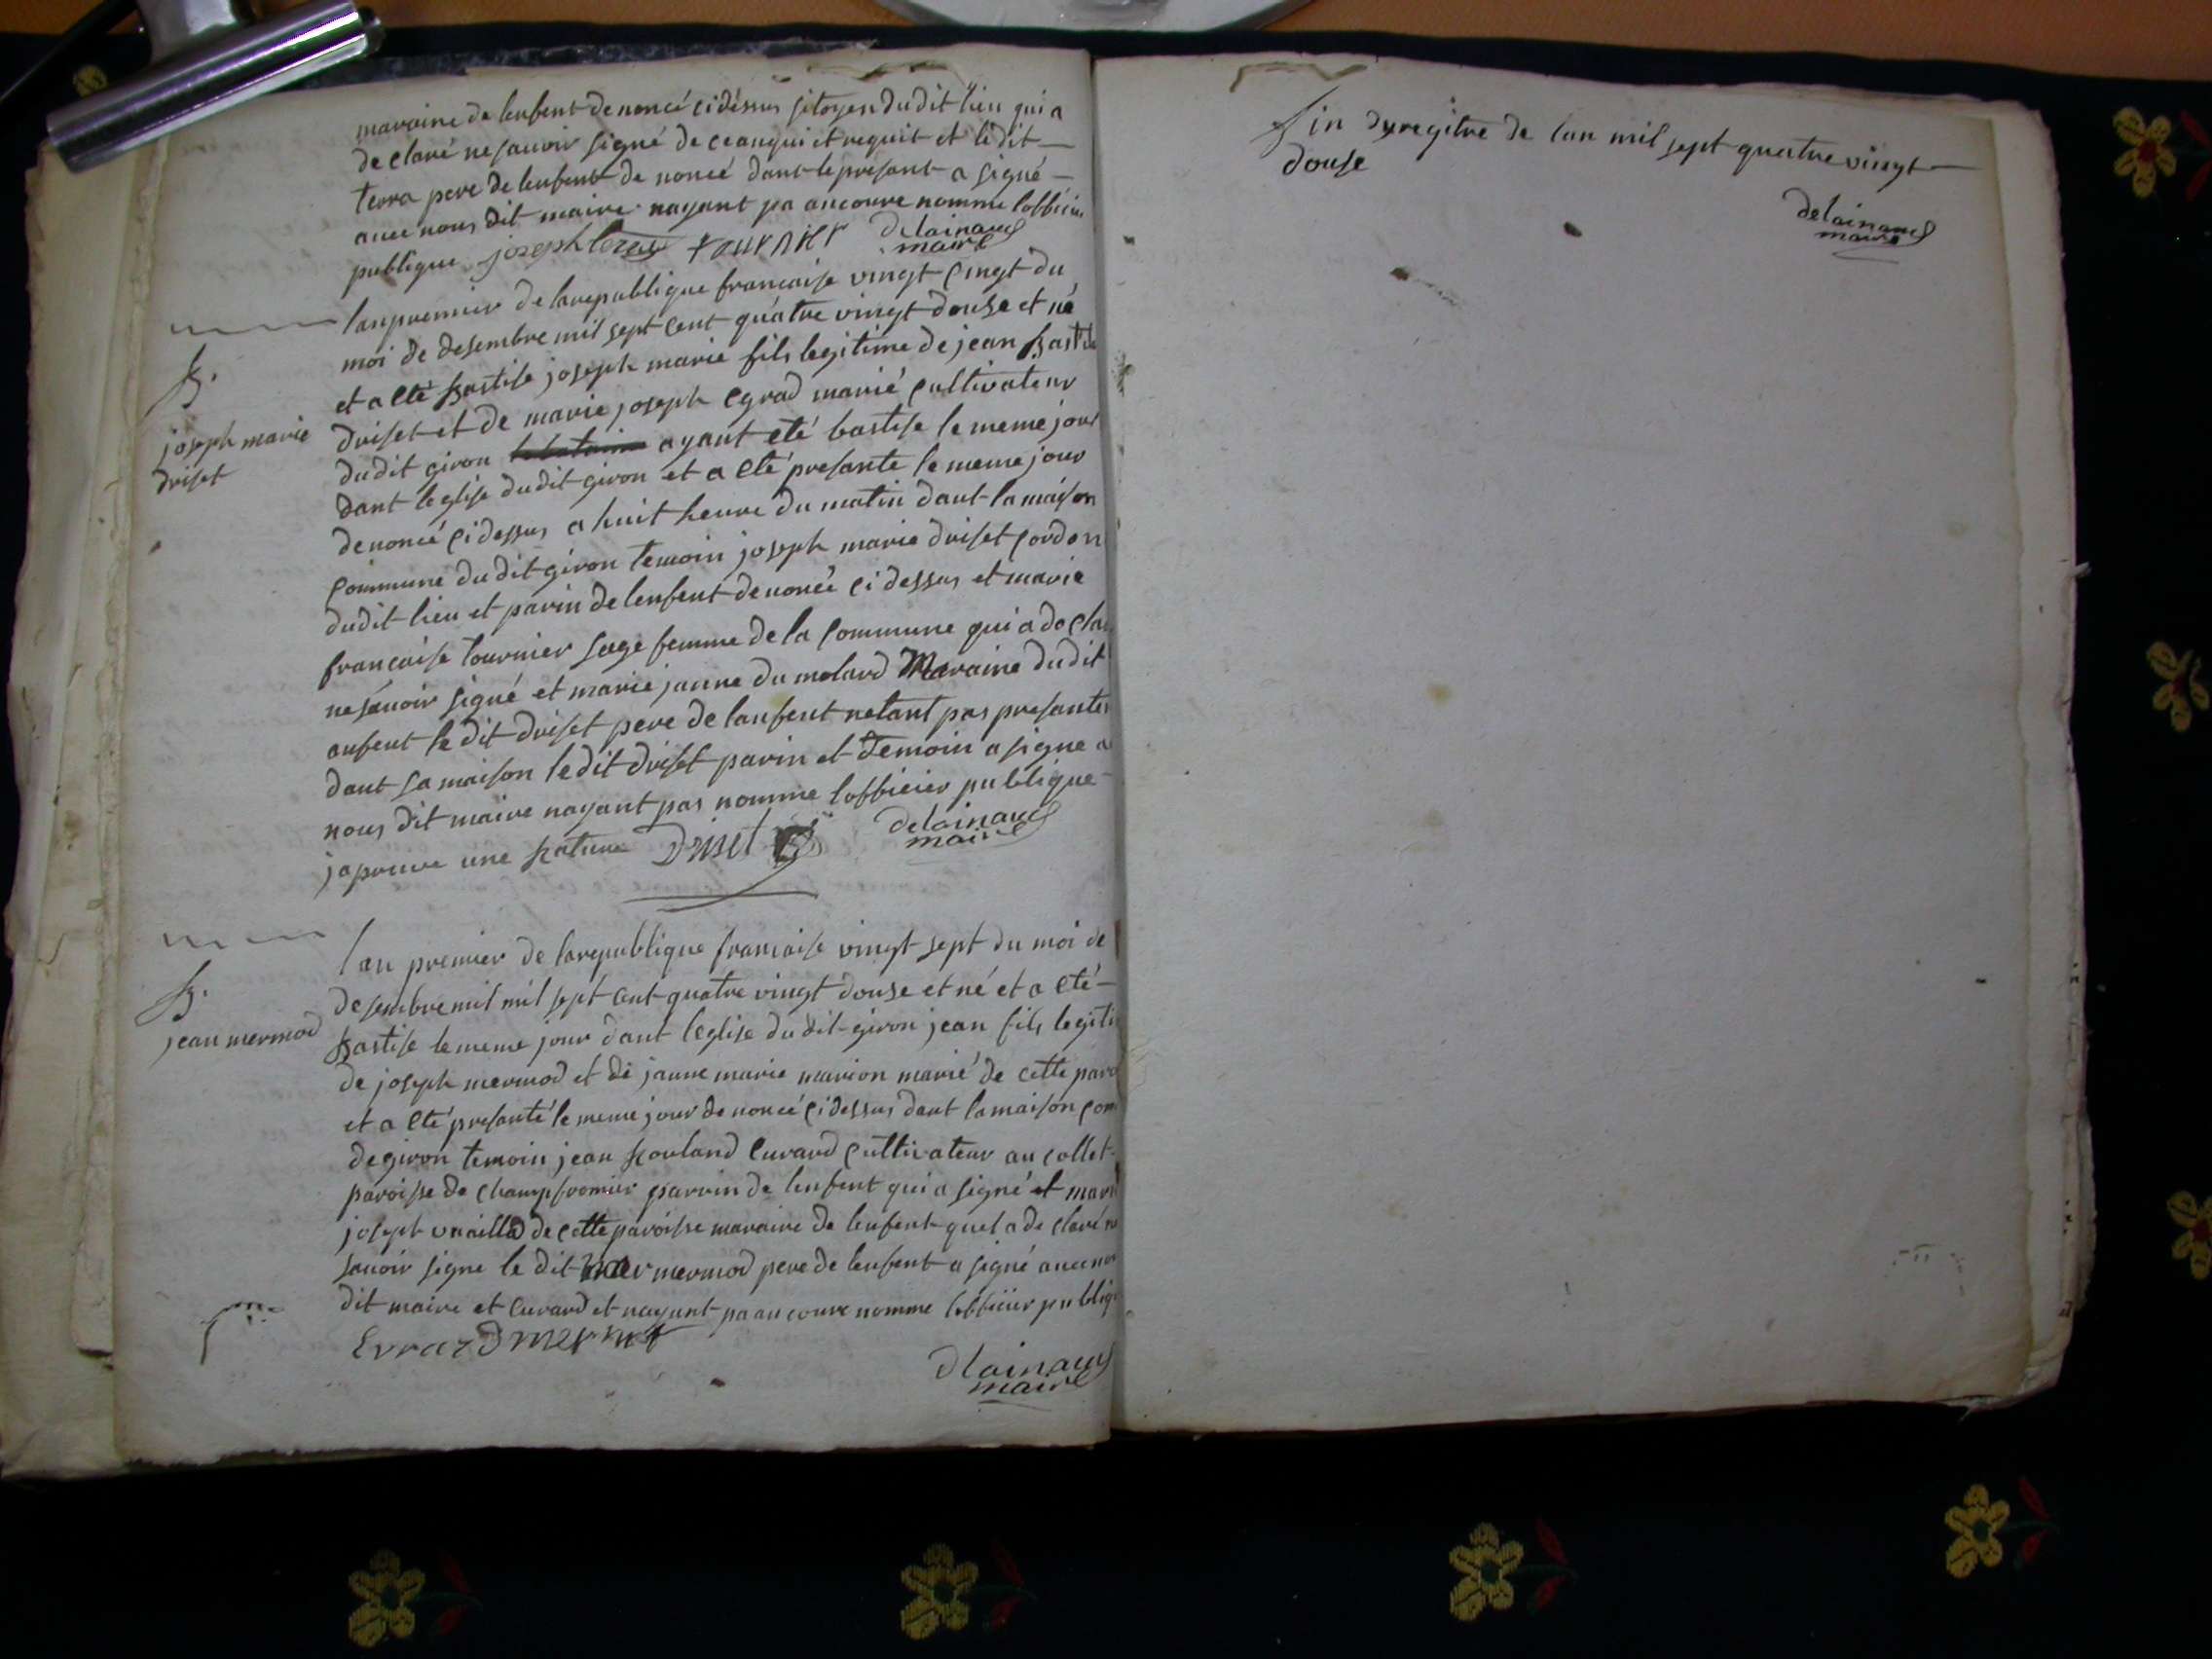 maraine de lenfent denoncé cidesus sitoyen dudit lieu qui a
de claré ne sauoir signé de ce anqui et requit et le dit
terra pere de lenfent de noncé dant le presant a signé
auec nous dit maire nayant pa ancoure nomme lobbicier
publique joseph tournier delainaud
maire
lan premier de larepublique francaise vingt cingt du
moi de desembre mil sept cent quatre vingt douse et né
B.
joseph marie
driset
et a eté bastise joseph marie fils legitime de jean bast
driset et de marie joseph egrad marié cultivateur
dudit giron ayant eté bastise le meme jour
dant leglise dudit giron et a eté presante le meme jour
denoncé cidessus a huit heure du matin dant la maison
commune du dit giron temoin joseph marie driset cordon
dudit lieu et parin de lenfent denoncé cidessus et marie
francaise tournier sage femme de la commune qui a de cla
ne sauoir signé et marie janne du molard Maraine dudit
anfent le dit driset pere de lanfent netant pas presanter
dant sa maison le dit driset parin et temoin a signe a
nous dit maire nayant pas nomme lobbicier publique
japreuve une Driset delainaud
maire
lan premier de larepublique francaise vingt sept du moi de
B.
jean mermod
desembre mil mil sept cent quatre vingt douse et né et a eté
bastise le meme jour dant leglise dudit giron jean fils legiti
de joseph mermod et de janne marie marion marié de cette paro
et a eté presanté le meme jour denoncé cidessus dant la maison com
de giron temoin jean evrard cultivateur au collet
paroisse de champfromier parrin de lenfent qui a signé et mari
joseph de cette paroisse maraine de lenfent quel a de claré ne
sauoir signe le dit mermod pere de lenfent a signé auec nou
dit maire et evrard et nayant pa ancoure nomme lobbicier publiq
Evrard mermet
dlainaud
maire
fin du regitre de lan mil sept quatre vingt
douse
delainaud
maire